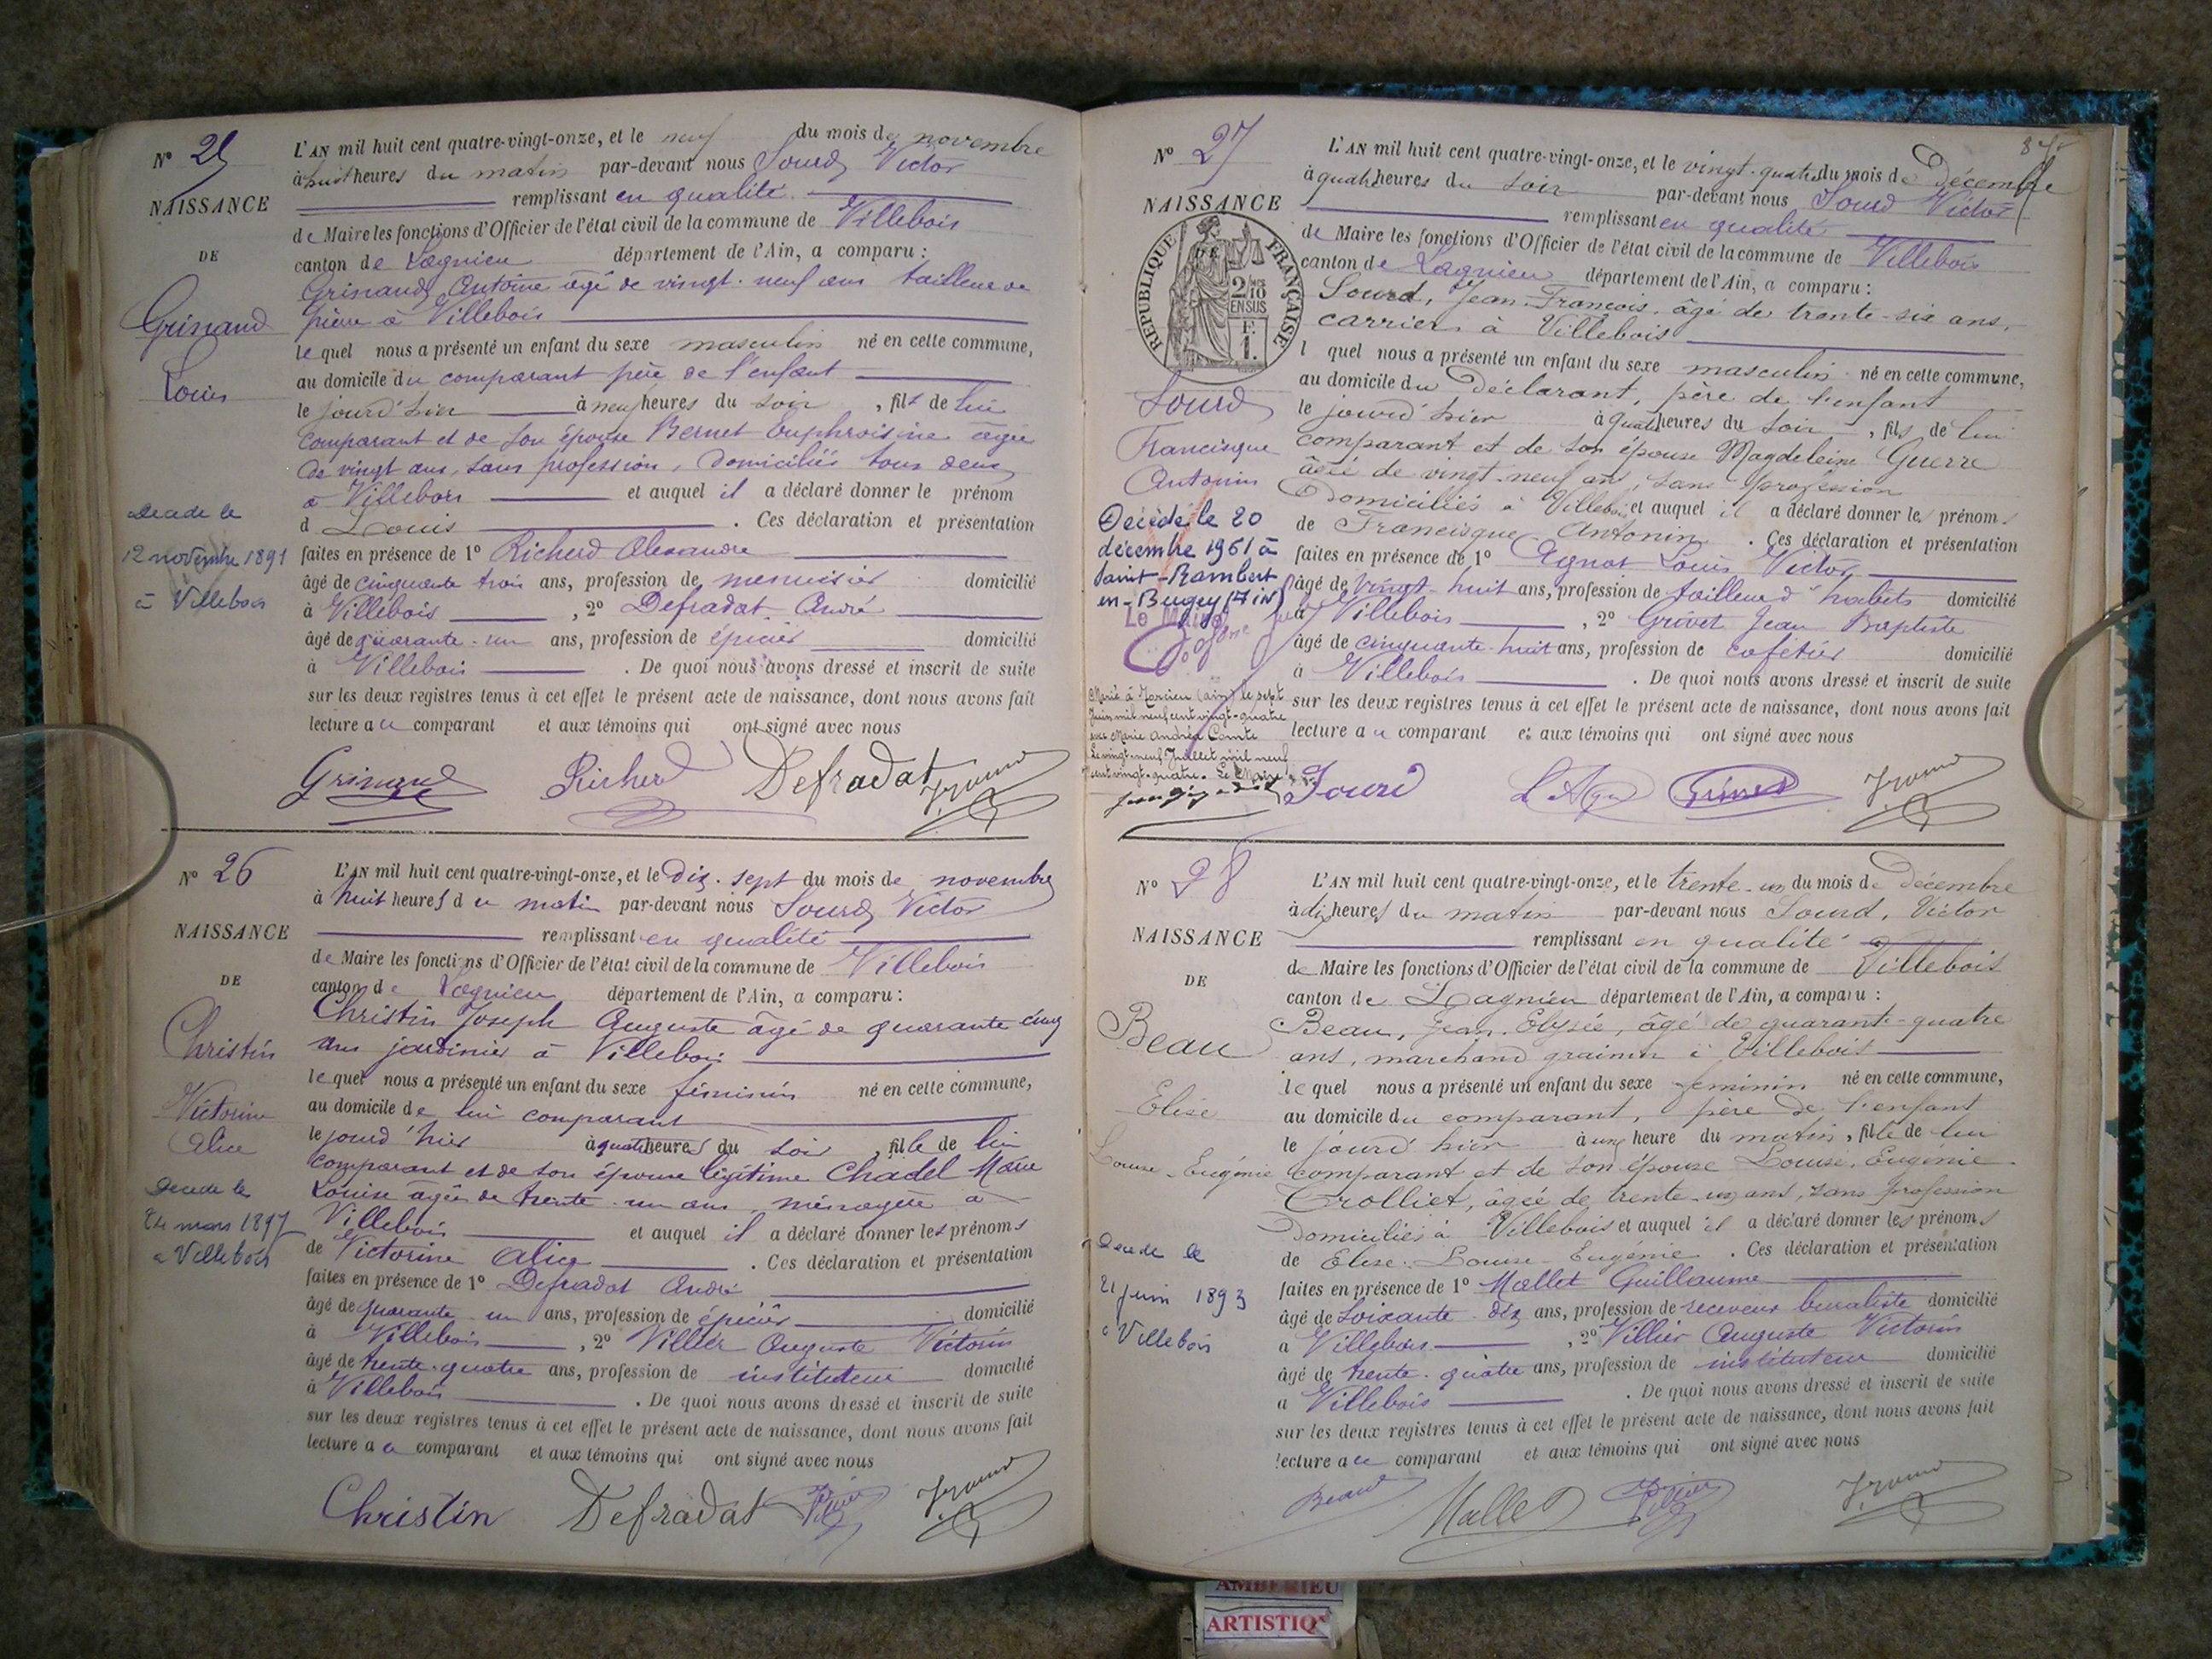 Nº 25
NAISSANCE
DE
Grinand
Louis
Decede le
12 novembre 1891
à Villebois
L'AN mil huit cent quatre-vingt-onze, et le neuf du mois de novembre
à huit heures du matin par-devant nous Sourd Victor
remplissant en qualité
de Maire les fonctions d'Officier de l'état civil de la commune de Villebois
canton de Lagnieu département de l'Ain, a comparu :
Grinand, Antoine âgé de vingt-neuf ans tailleur de
pierre à Villebois
lequel nous a présenté un enfant du sexe masculin né en cette commune,
au domicile du comparant père de l'enfant
le jourd'hier à neuf heures du soir, fils de lui
comparant et de son épouse Bernet Euphroisine âgée
de vingt ans, sans profession, domiciliés tous deux
à Villebois et auquel il a déclaré donner le prénom
d Louis. Ces déclaration et présentation
faites en présence de 1º Richerd Alexandre
âgé de cinquante trois ans, profession de menuisier domicilié
à Villebois, 2º Defradat André
âgé de quarante-un ans, profession de épicier domicilié
à Villebois. De quoi nous avons dressé et inscrit de suite
sur les deux registres tenus à cet effet le présent acte de naissance, dont nous avons fait
lecture au comparant et aux témoins qui ont signé avec nous
Grinand Richerd Defradat
Nº 26
NAISSANCE
DE
Christin
Victorine
Alice
Decede le
24 mars 1897
a Villebois
L'AN mil huit cent quatre-vingt-onze, et le dix-sept du mois de novembre
à huit heures du matin par-devant nous Sourd Victor
remplissant en qualité
de Maire les fonctions d'Officier de l'état civil de la commune de Villebois
canton de Lagnieu département de l'Ain, a comparu :
Christin Joseph Auguste âgé de quarante cinq
ans jardinier à Villebois
lequel nous a présenté un enfant du sexe féminin né en cette commune,
au domicile de lui comparant
le jourd'hier à quatre heures du soir, fille de lui
comparant et de son épouse légitime Chadel Marie
Louise âgée de trente-un ans, ménagère à
Villebois et auquel il a déclaré donner les prénoms
de Victorine Alice. Ces déclaration et présentation
faites en présence de 1º Defradat André
âgé de quarante un ans, profession de épicier domicilié
à Villebois, 2º Villier Auguste Victorin
âgé de trente-quatre ans, profession de instituteur domicilié
à Villebois. De quoi nous avons dressé et inscrit de suite
sur les deux registres tenus à cet effet le présent acte de naissance, dont nous avons fait
lecture au comparant et aux témoins qui ont signé avec nous
Christin Defradat
Nº 27
NAISSANCE
DE
RÉPUBLIQUE FRANÇAISE
2/10
EN SUS
1 F.
Sourd
Francisque
Antonin
Décédé le 20
décembre 1961 à
Saint-Rambert
en-Bugey (Ain)
Le Maire
Marié à Torcieu (Ain) le sept
Juin mil neuf cent vingt-quatre
avec Marie Andréa Comte
Le vingt-neuf Juillet mil neuf
cent vingt-quatre. Le Maire
L'AN mil huit cent quatre-vingt-onze, et le vingt-quatre du mois de Décembre
à quatre heures du soir par-devant nous Sourd Victor
remplissant en qualité
de Maire les fonctions d'Officier de l'état civil de la commune de Villebois
canton de Lagnieu département de l'Ain, a comparu :
Sourd, Jean-François, âgé de trente-six ans,
carrier à Villebois
l quel nous a présenté un enfant du sexe masculin né en cette commune,
au domicile du Déclarant, père de l'enfant
le jourd'hier à quatre heures du soir, fils de lui
comparant et de son épouse Magdeleine Guerre
âgée de vingt-neuf ans, sans profession
Domiciliés à Villebois et auquel il a déclaré donner les prénoms
de Francisque Antonin. Ces déclaration et présentation
faites en présence de 1º Agnat Louis Victor
âgé de vingt-huit ans, profession de tailleur d'habits domicilié
à Villebois, 2º Grivet Jean Baptiste
âgé de cinquante-huit ans, profession de cafetier domicilié
à Villebois. De quoi nous avons dressé et inscrit de suite
sur les deux registres tenus à cet effet le présent acte de naissance, dont nous avons fait
lecture au comparant et aux témoins qui ont signé avec nous
Sourd
Nº 28
NAISSANCE
DE
Beau
Elise
Louise-Eugénie
Decede le
21 juin 1893
à Villebois
L'AN mil huit cent quatre-vingt-onze, et le trente-un du mois de Décembre
à dix heures du matin par-devant nous Sourd, Victor
remplissant en qualité
de Maire les fonctions d'Officier de l'état civil de la commune de Villebois
canton de Lagnieu département de l'Ain, a comparu :
Beau, Jean-Elysée, âgé de quarante-quatre
ans, marchand grainier à Villebois
lequel nous a présenté un enfant du sexe féminin né en cette commune,
au domicile du comparant, père de l'enfant
le jourd'hier à une heure du matin, fille de lui
comparant et de son épouse Louise, Eugénie
Crolliet, âgée de trente-un ans, sans profession
Domiciliés à Villebois et auquel il a déclaré donner les prénoms
de Elise-Louise-Eugénie. Ces déclaration et présentation
faites en présence de 1º Mallet Guillaume
âgé de soixante-dix ans, profession de receveur buraliste domicilié
a Villebois, 2º Villier Auguste Victorin
âgé de trente-quatre ans, profession de instituteur domicilié
a Villebois. De quoi nous avons dressé et inscrit de suite
sur les deux registres tenus à cet effet le présent acte de naissance, dont nous avons fait
lecture au comparant et aux témoins qui ont signé avec nous
Beau Mallet
AMBERIEU
ARTISTIQ